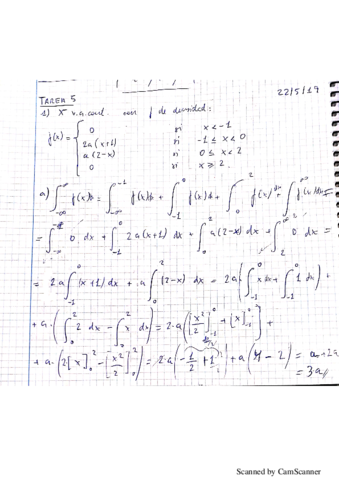 TAREA 5
22/5/19
1) X v.a. cont. con f de densidad:
f(x) = { 0 si x < -1
2a(x+1) si -1 ≤ x < 0
a(2-x) si 0 ≤ x < 2
0 si x ≥ 2
a) ∫_{-∞}^{∞} f(x)dx = ∫_{-∞}^{-1} f(x)dx + ∫_{-1}^{0} f(x)dx + ∫_{0}^{2} f(x)dx + ∫_{2}^{∞} f(x)dx =
= ∫_{-∞}^{-1} 0 dx + ∫_{-1}^{0} 2a(x+1) dx + ∫_{0}^{2} a(2-x) dx + ∫_{2}^{∞} 0 dx =
= 2a ∫_{-1}^{0} (x+1) dx + a ∫_{0}^{2} (2-x) dx = 2a( ∫_{-1}^{0} x dx + ∫_{-1}^{0} 1 dx ) +
+ a·( ∫_{0}^{2} 2 dx - ∫_{0}^{2} x dx ) = 2·a( [x²/2]_{-1}^{0} + [x]_{-1}^{0} ) +
+ a·( 2[x]_{0}^{2} - [x²/2]_{0}^{2} ) = 2·a( -1/2 + 1 ) + a(4-2) = a+2a
= 3a
Scanned by CamScanner